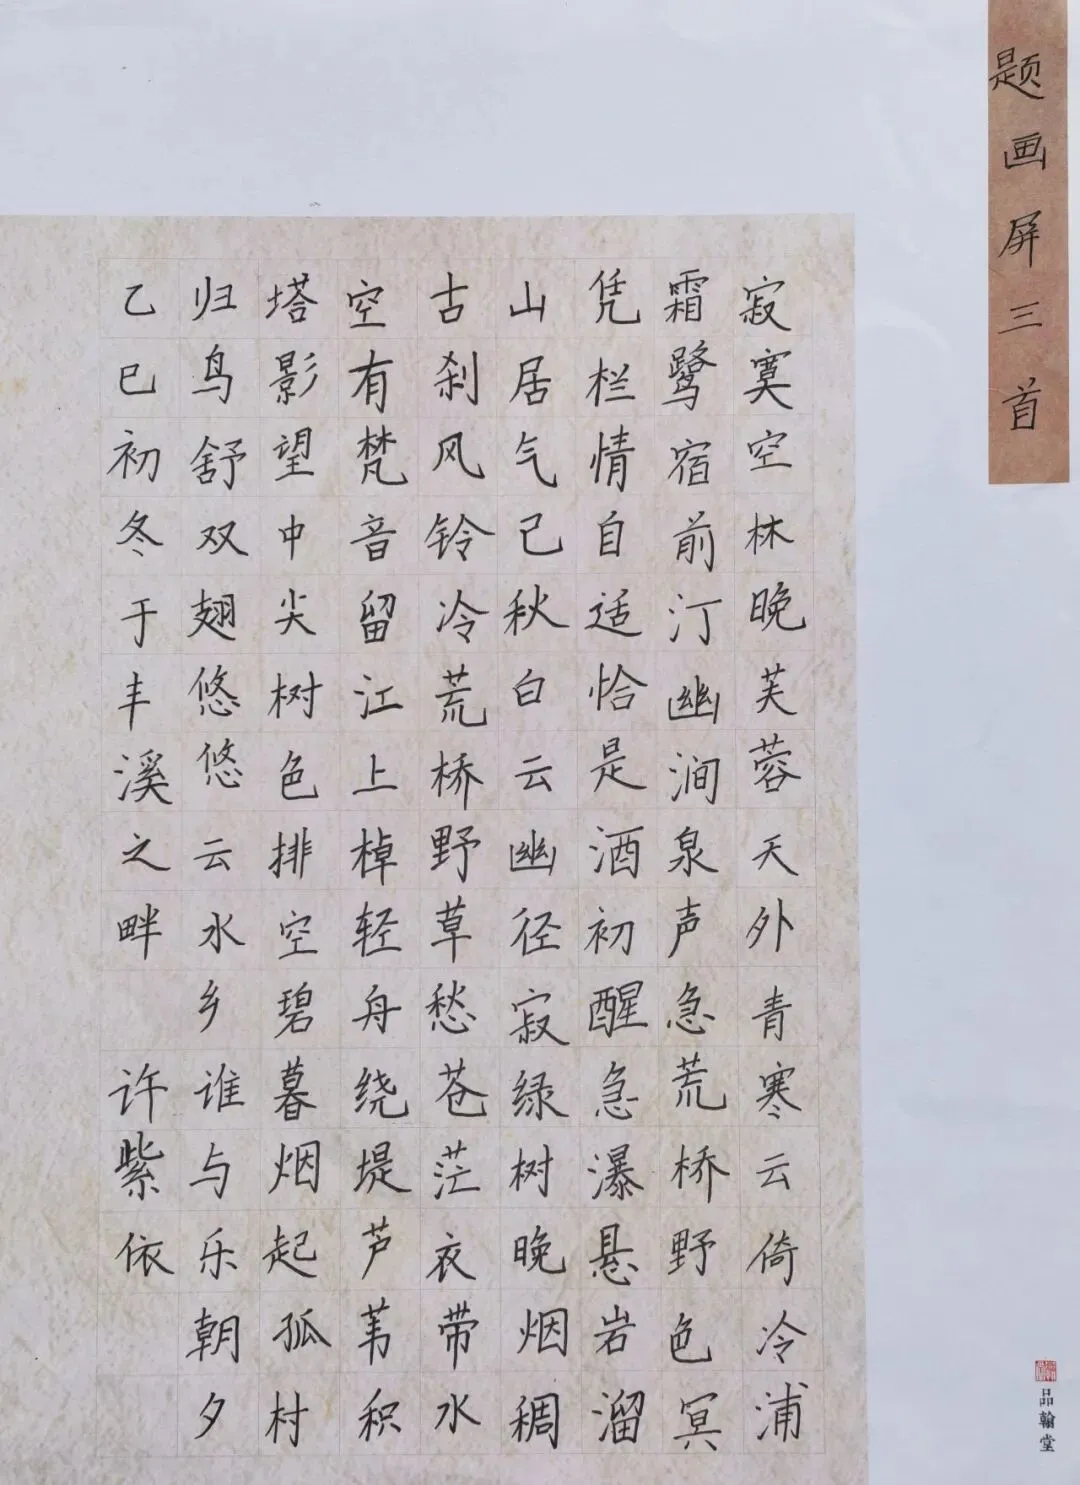 题画屏三首
寂寞空林晚芙蓉天外青寒云倚冷浦
霜鹭宿前汀幽涧泉声急荒桥野色冥
凭栏情自适恰是酒初醒急瀑悬岩溜
山居气已秋白云幽径寂绿树晚烟稠
古刹风铃冷荒桥野草愁苍茫衣带水
空有梵音留江上棹轻舟绕堤芦苇积
塔影望中尖树色排空碧暮烟起孤村
归鸟舒双翅悠悠云水乡谁与乐朝夕
乙巳初冬于丰溪之畔 许紫依
品翰堂